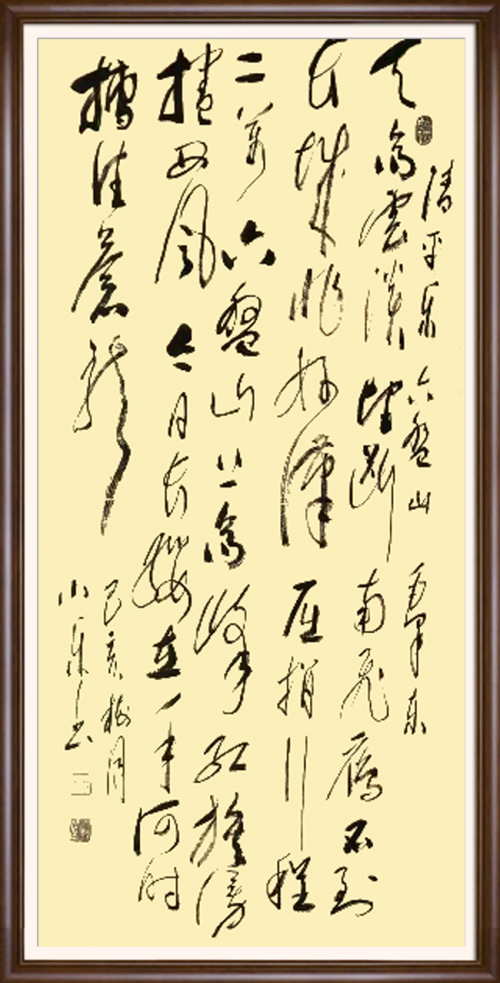 清平乐 六盘山 毛泽东
天高雲淡望断南飞雁不到
长城非好漢屈指行程
二万六盘山上高峰红旗漫
捲西风今日长缨在手何时
缚住苍龙
己亥梅月
小乐书